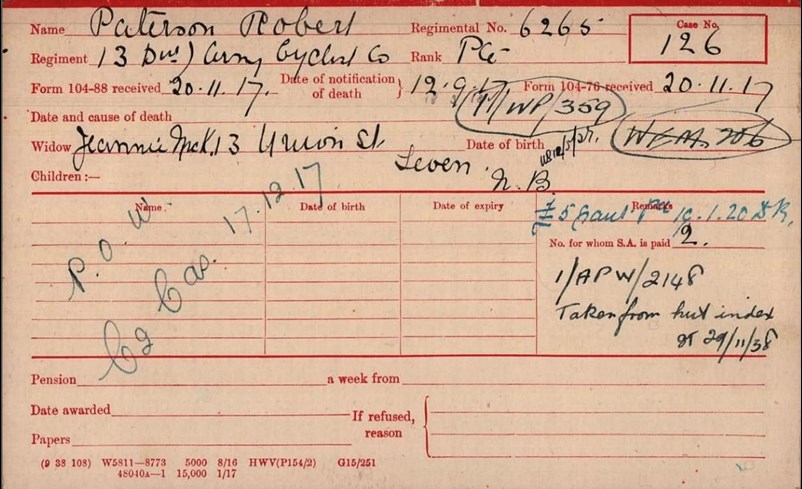 Name Paterson Robert Regimental No. 6265 Case No. 126
Regiment 13 Divl) Army Cyclist Co Rank Pte
Form 104-88 received 20.11.17. Date of notification of death } 12.9.17 Form 104-76 received 20.11.17
Date and cause of death 11/WP/359
Widow Jeannie McK. 13 Union St. Date of birth
Leven
N.B.
Children:—
Name. Date of birth Date of expiry Remarks
£5 10.1.20
No. for whom S.A. is paid 2.
P.O.W
Cas. 17.12.17
1/APW/2148
Taken from hut index
29/11/38
Pension a week from
Date awarded If refused,
Papers reason
(9 38 108) W5811—8773 5000 8/16 HWV(P154/2) G15/251
48040A—1 15,000 1/17